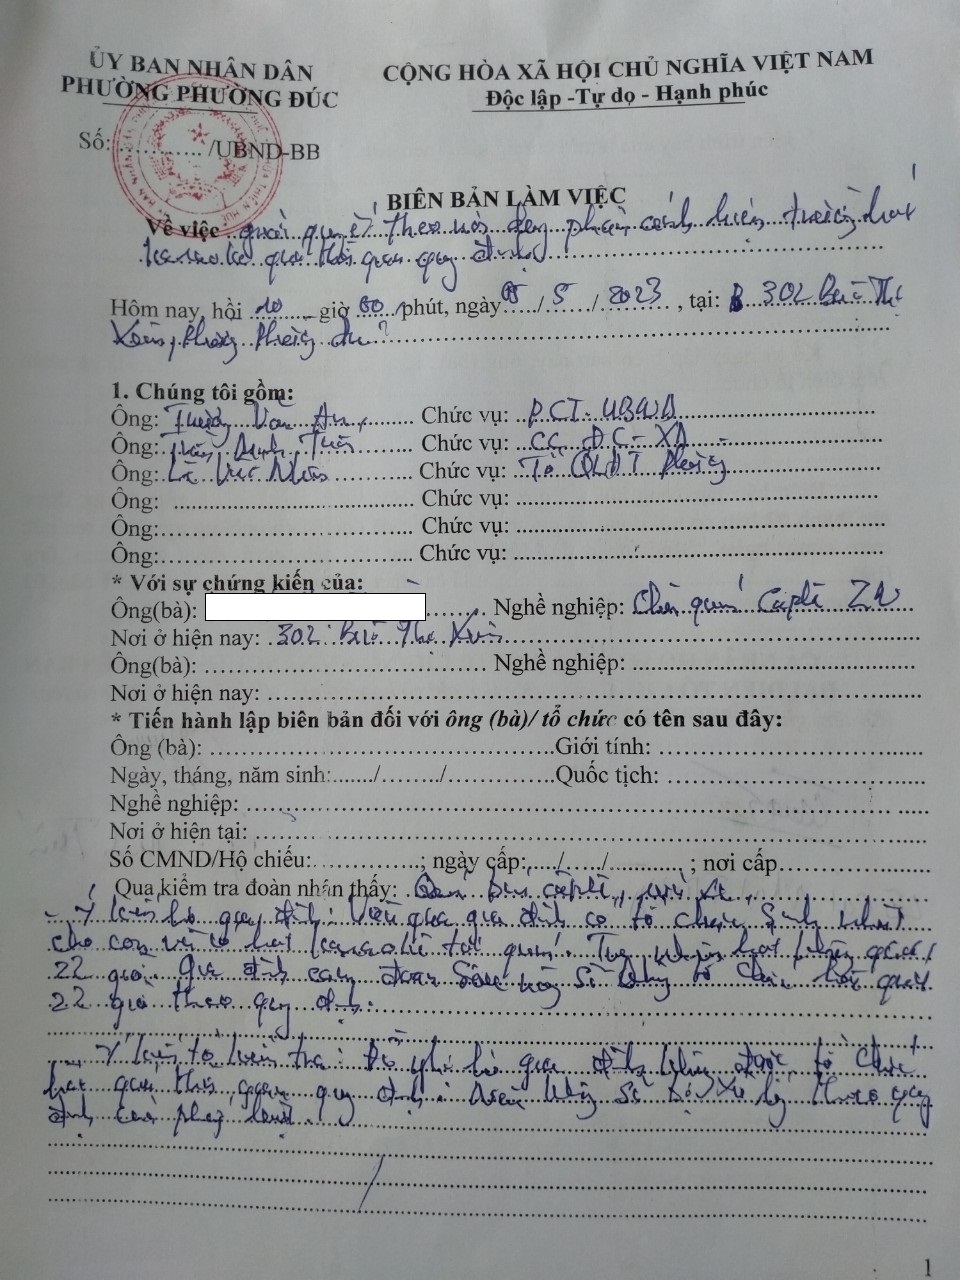 ỦY BAN NHÂN DÂN
PHƯỜNG PHƯỜNG ĐÚC
CỘNG HÒA XÃ HỘI CHỦ NGHĨA VIỆT NAM
Độc lập -Tự dọ - Hạnh phúc
Số:............ /UBND-BB
BIÊN BẢN LÀM VIỆC
Về việc giải quyết theo nội dung phản ánh hiện tượng hát
karaoke quá thời gian quy định
Hôm nay, hồi 10 giờ 00 phút, ngày 05/5/2023, tại: 302 Bùi Thị
Xuân, phường Phường Đúc
1. Chúng tôi gồm:
Ông: Văn An Chức vụ: P.CT-UBND
Ông: Trần Đình Chức vụ: CC ĐC-XD
Ông: Lê Chức vụ: Tổ QLĐT Phường
Ông: .................... Chức vụ: ....................
Ông:.................... Chức vụ: ....................
Ông:.................... Chức vụ: ....................
* Với sự chứng kiến của:
Ông(bà): Nghề nghiệp: Chủ quán Càphê
Nơi ở hiện nay: 302 Bùi Thị Xuân
Ông(bà): .................... Nghề nghiệp: ....................
Nơi ở hiện nay: ....................
* Tiến hành lập biên bản đối với ông (bà)/ tổ chức có tên sau đây:
Ông (bà): ....................Giới tính: ....................
Ngày, tháng, năm sinh:......./......../............Quốc tịch: ....................
Nghề nghiệp: ....................
Nơi ở hiện tại: ....................
Số CMND/Hộ chiếu:..............; ngày cấp:...../...../..........; nơi cấp....................
Qua kiểm tra đoàn nhận thấy: Quán càphê
- Ý kiến hộ gia đình: Vừa qua gia đình có tổ chức sinh nhật
cho con và có hát karaoke tại quán. Tuy nhiên hát không quá
22 giờ. Gia đình cam đoan sau này sẽ không tổ chức hát quá
22 giờ theo quy định.
- Ý kiến tổ kiểm tra: Đề nghị hộ gia đình không được tổ chức
hát quá thời gian quy định. Nếu không sẽ bị xử lý theo quy
định của pháp luật.
1